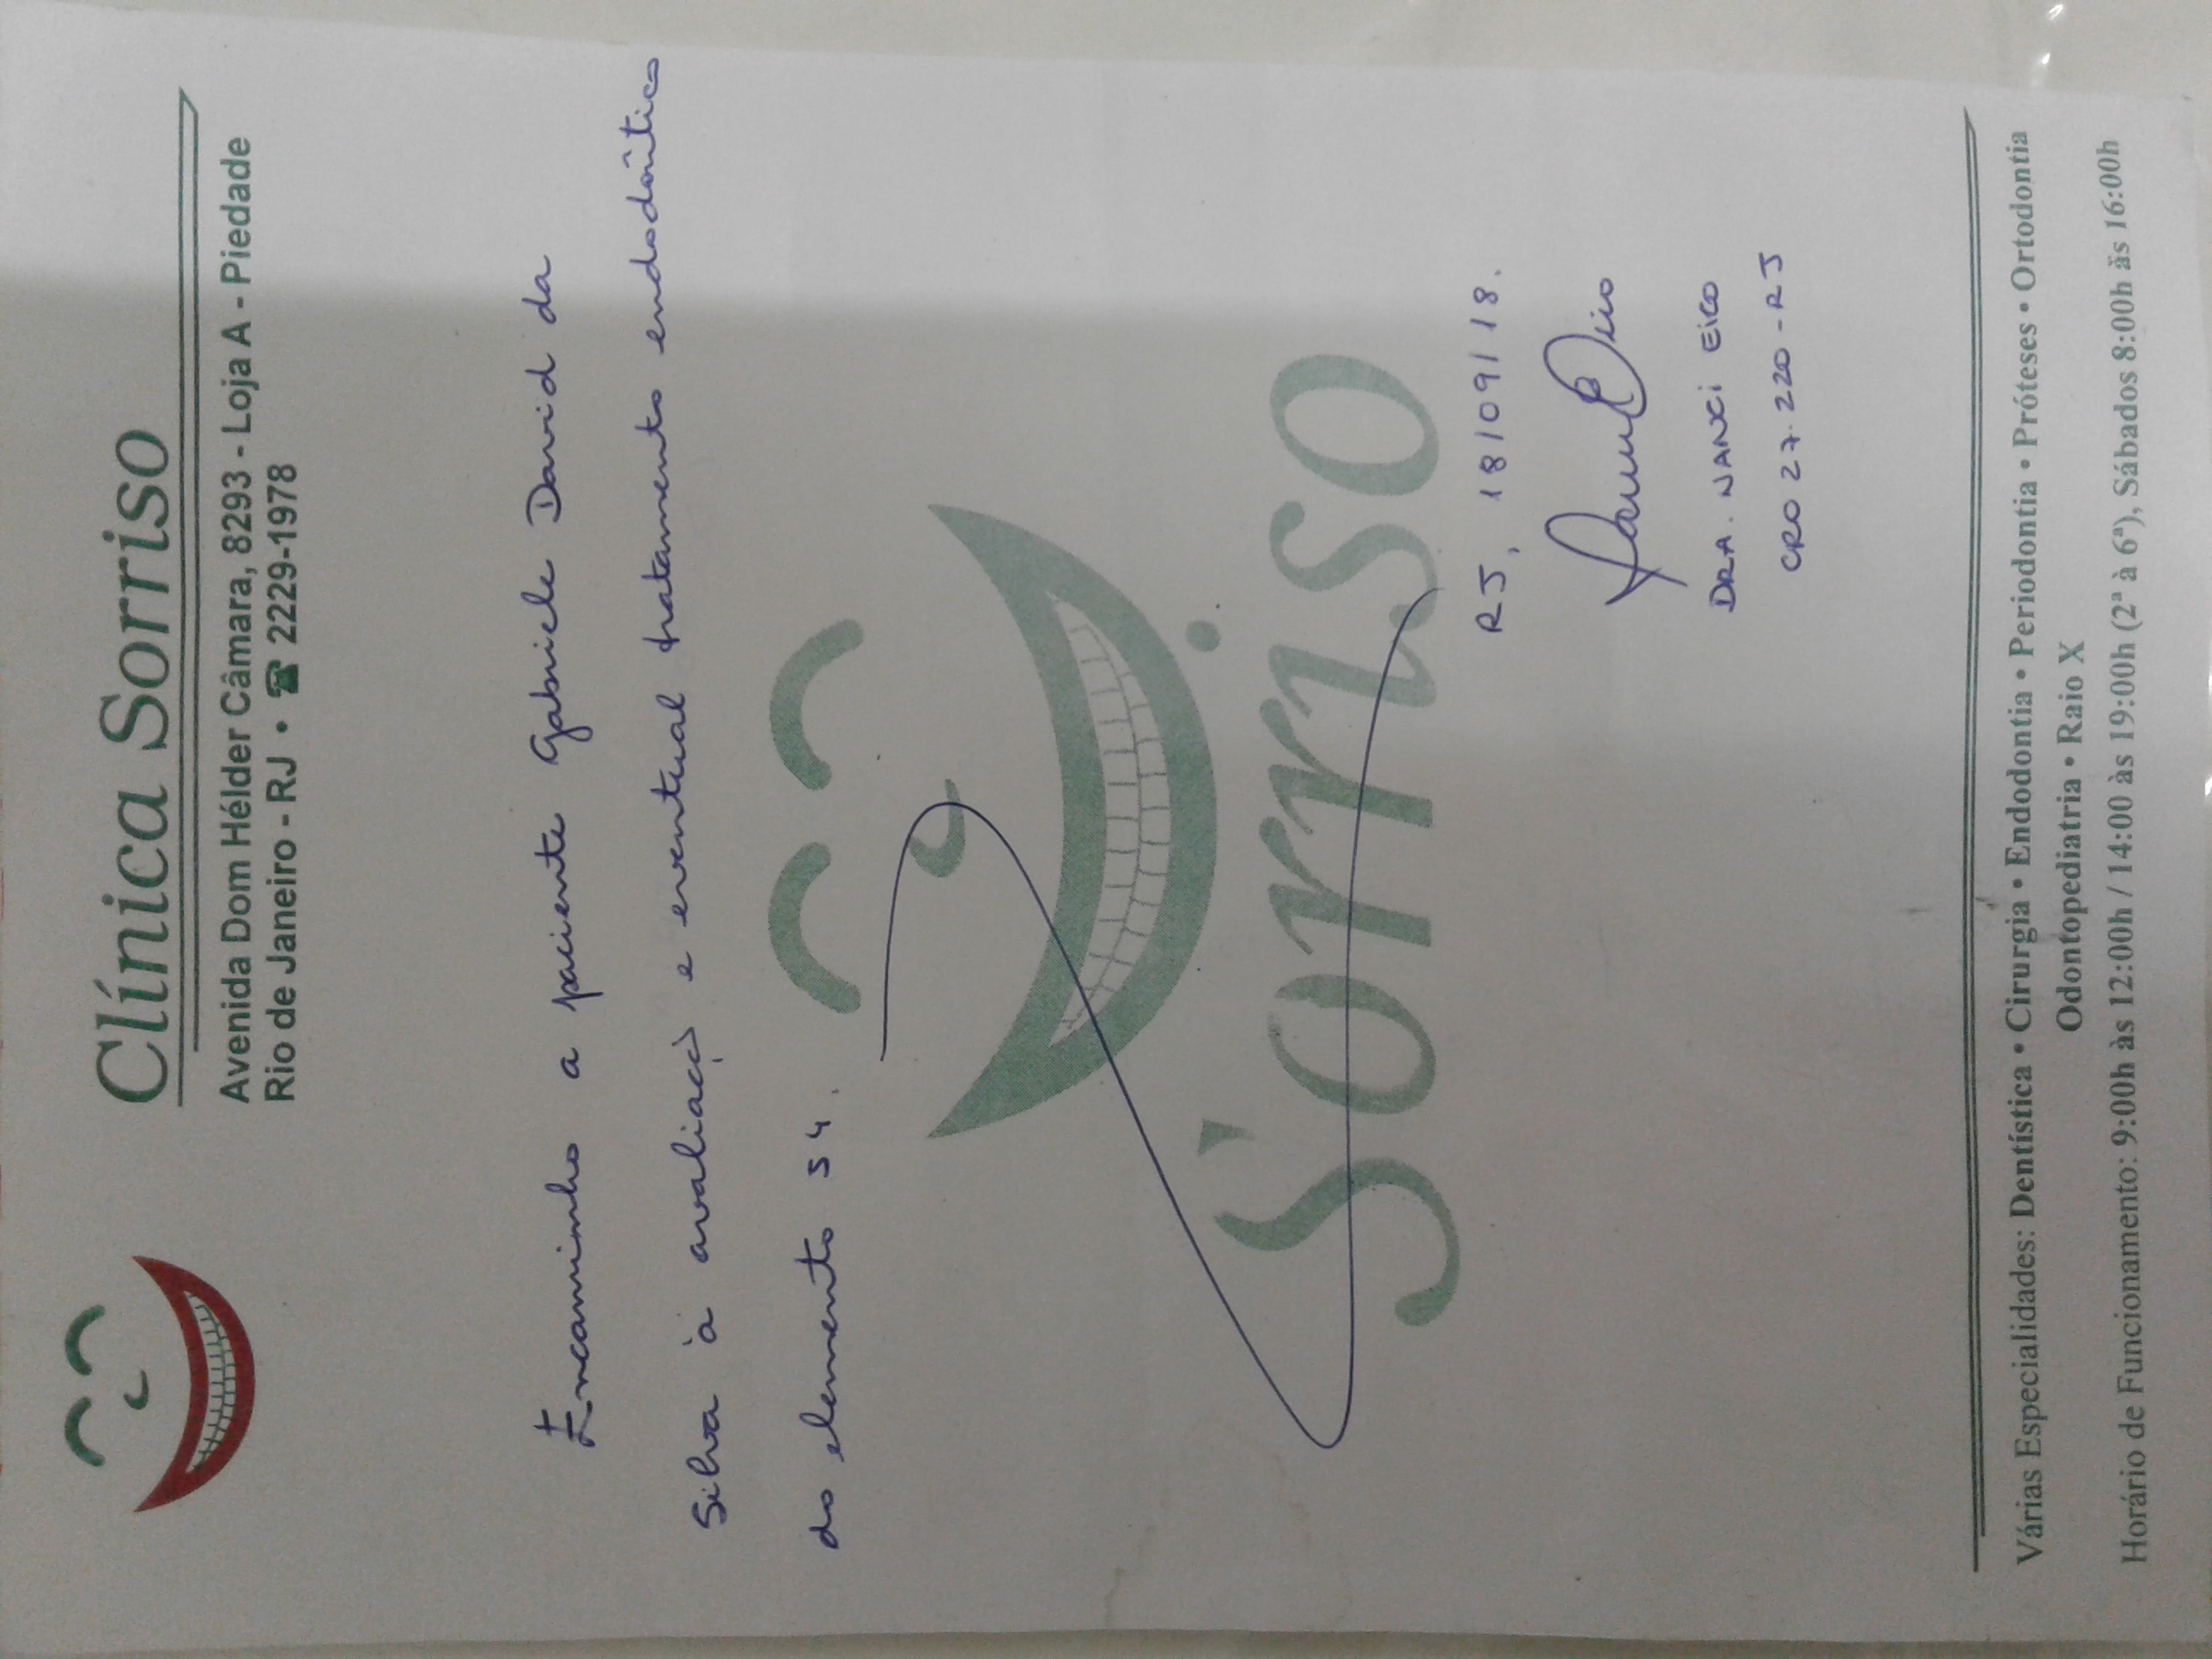 Clínica Sorriso
Avenida Dom Hélder Câmara, 8293 - Loja A - Piedade
Rio de Janeiro - RJ • ☎ 2229-1978
Encaminho a paciente Gabriele David da
Silva à avaliaçõ e eventual tratamento endodôntico
do elemento 54.
Sorriso
RJ, 18/09/18.
DRA. NANCI EICO
CRO 27.220-RJ
Várias Especialidades: Dentística • Cirurgia • Endodontia • Periodontia • Próteses • Ortodontia
Odontopediatria • Raio X
Horário de Funcionamento: 9:00h às 12:00h / 14:00 às 19:00h (2ª à 6ª), Sábados 8:00h às 16:00h